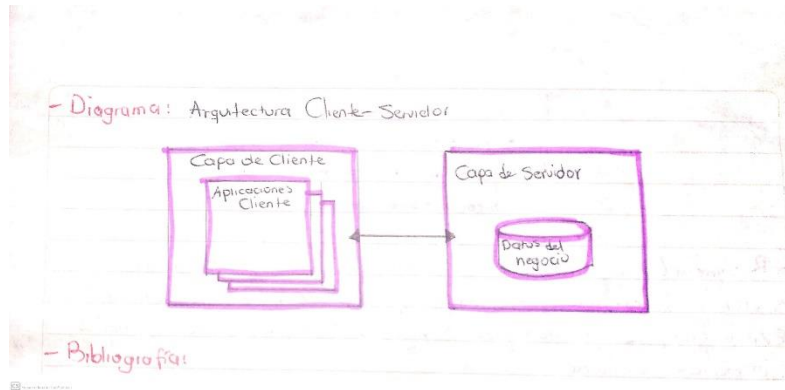 - Diagrama: Arquitectura Cliente-Servidor
Capa de Cliente
Aplicaciones
Cliente
Capa de Servidor
Datos del
negocio
- Bibliografía: